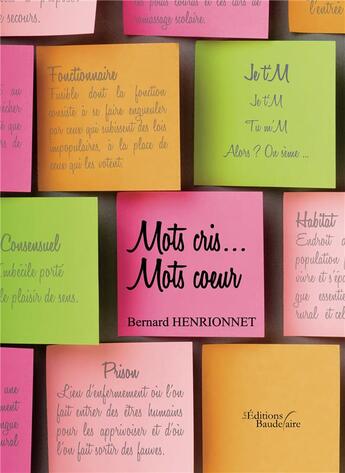 s secours.
les poids lourds et les cars de
ramassage scolaire.
l'entrée
Fonctionnaire
Fusible dont la fonction
consiste à se faire engueuler
par ceux qui subissent des lois
impopulaires, à la place de
ceux qui les votent.
Je t'M
Je t'M
Tu m'M
Alors ? On sème ...
Consensuel
Imbécile porté
le plaisir de sens.
Mots cris...
Mots coeur
Bernard HENRIONNET
Habitat
Endroit a
vivre et s'ép
que essentie
rural et cel
Prison
Lieu d'enfermement où l'on
fait entrer des êtres humains
pour les apprivoiser et d'où
l'on fait sortir des fauves.
une
ment
ngue
ural
Les Éditions
Baudelaire